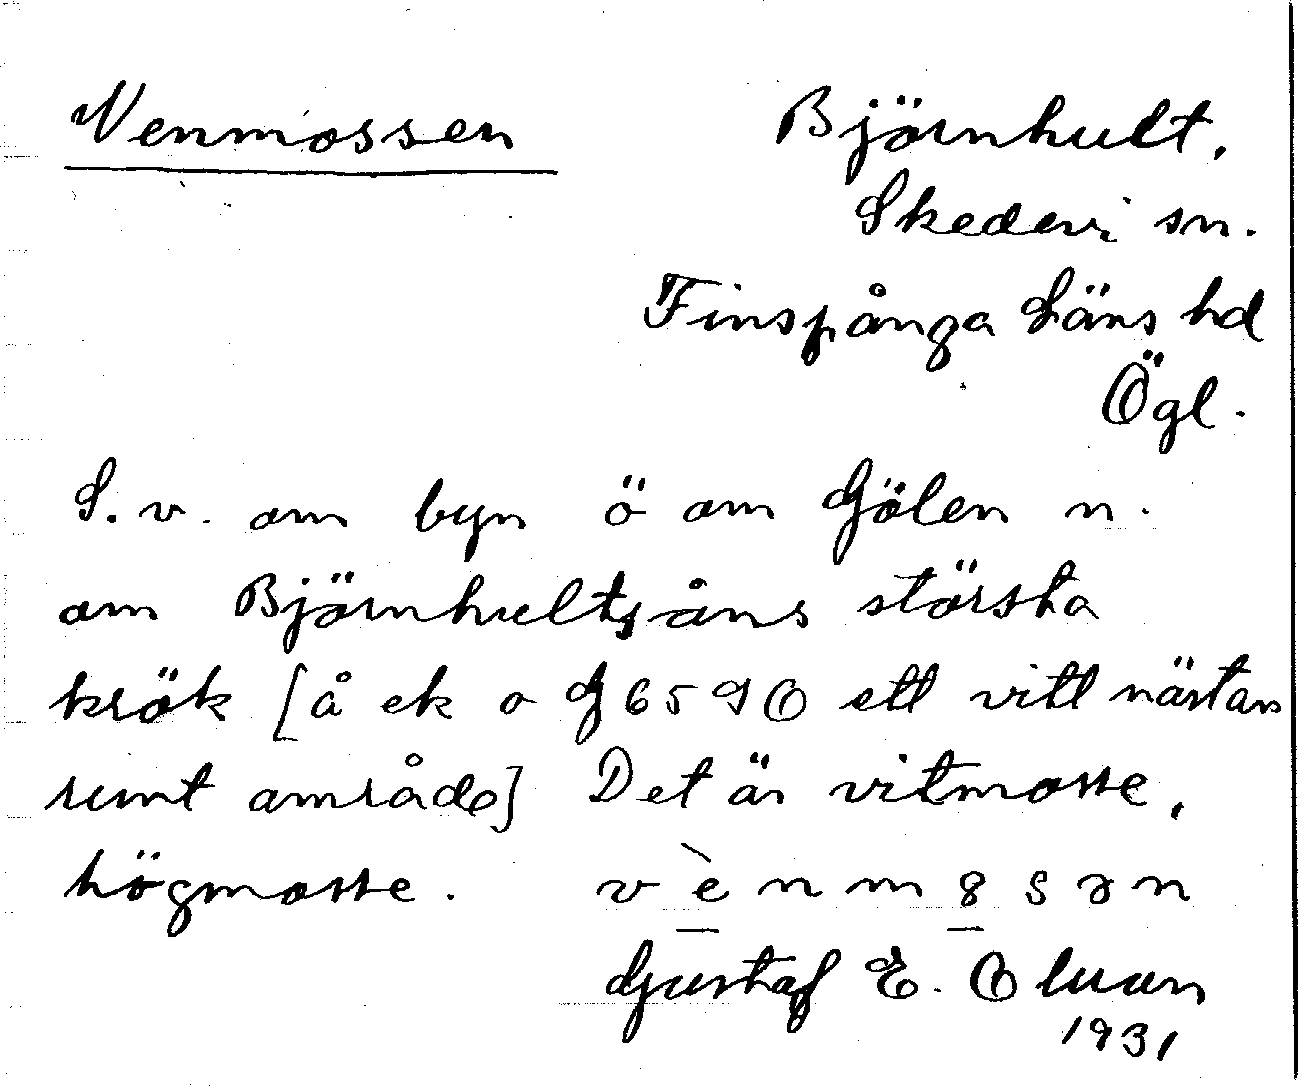 Venmossen
Björnhult,
Skedevi sn.
Finspånga läns hd
Ögl.
S. v. om byn ö om Gölen n.
om Björnhultsåns största
krök [å ek o G 6590 ett vitt nästan
runt område] Det är vitmosse,
högmosse. vènmɡsən
Gustaf E. Oluan
1931